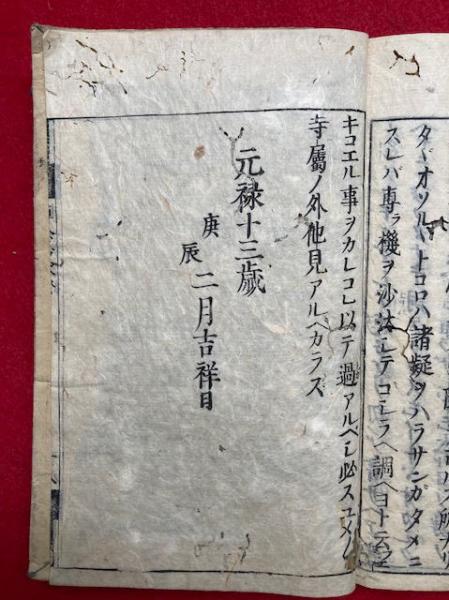 タヾオソルヽトコロハ諸疑ヲハラサンガタメニ
スレバ専ラ機ヲ沙汰シテコシラヘ調ヘヨト云フ
キコエル事ヲカレコレ以テ過アルベシ必スユメ〱
寺属ノ外他見アルヘカラズ
元禄十三歳
庚辰二月吉祥日